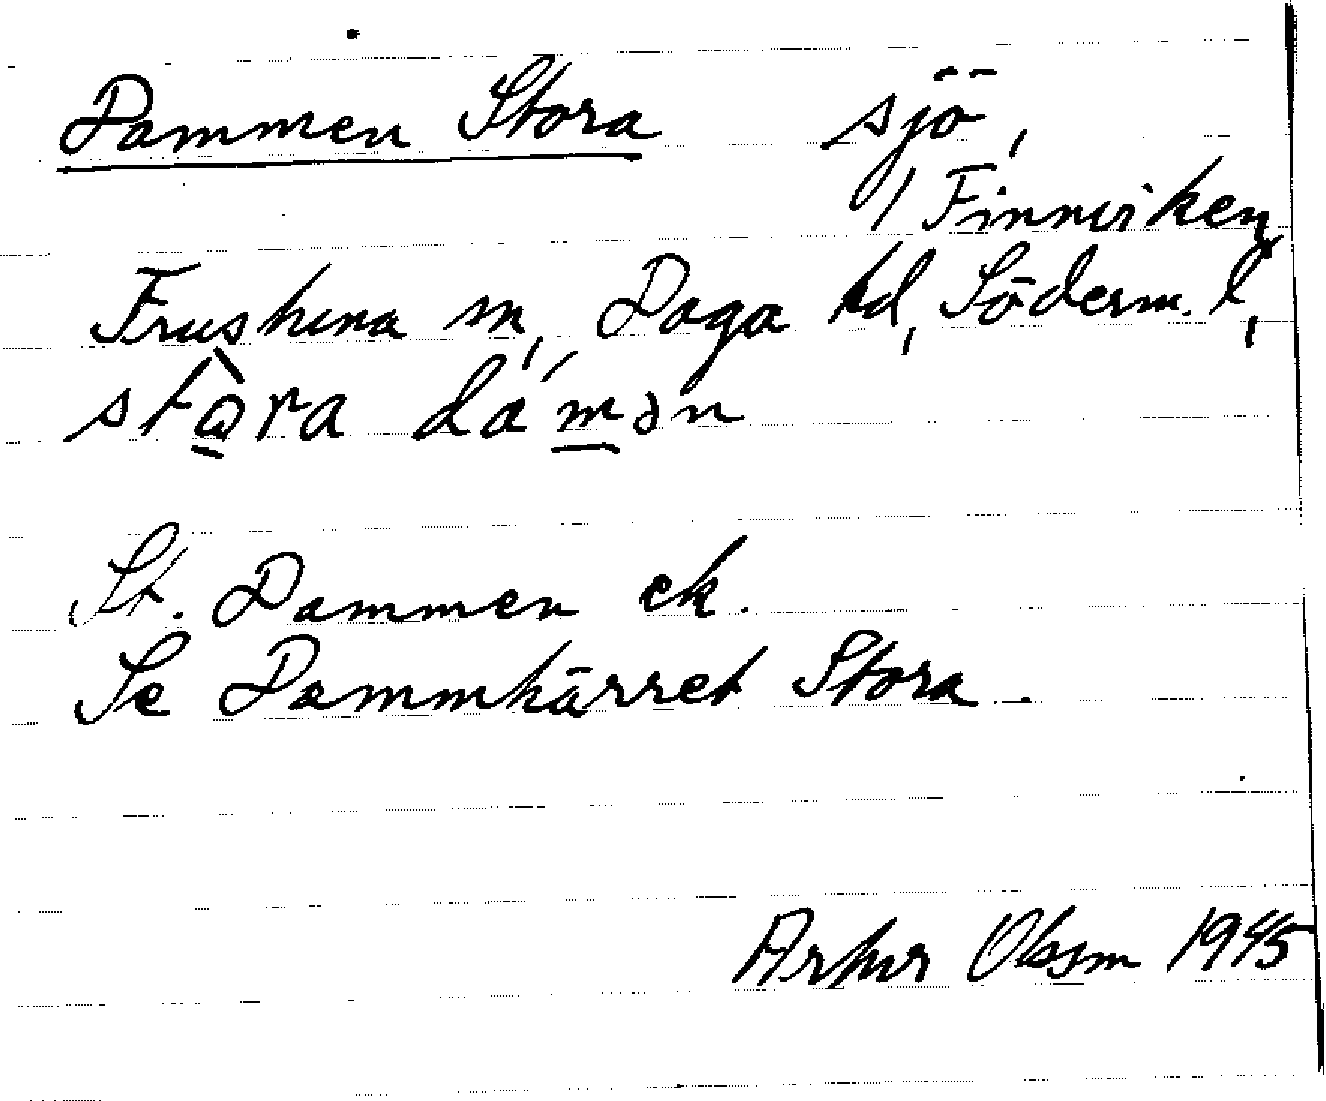 Dammen Stora sjö,
i Finnviken
Frustuna sn, Daga hd, Söderm. l,
stọ̀ra dám̲ən
St. Dammen ek.
Se Dammkärret Stora.
Artur Olsson 1945